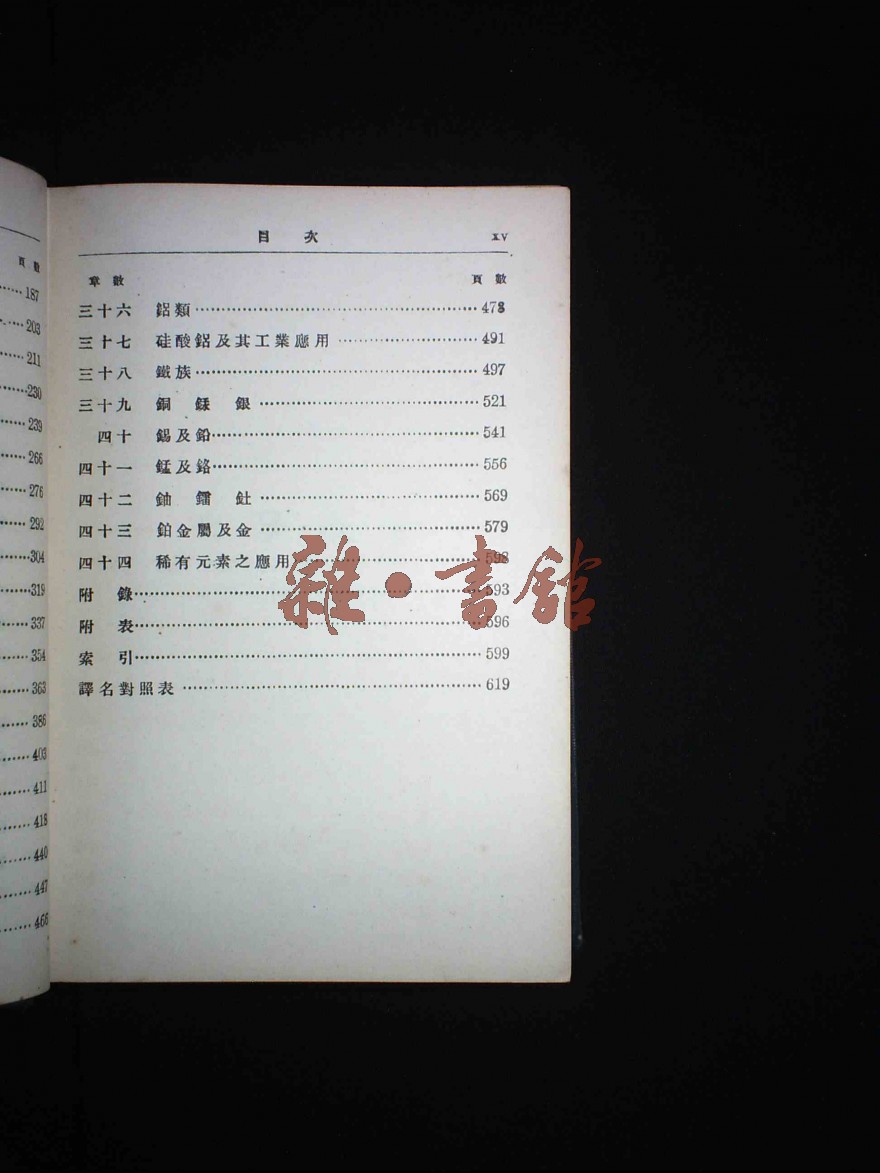 頁數
187
203
211
230
239
266
276
292
304
319
337
354
363
386
403
411
418
440
447
466
目 次 xv
章數 頁數
三十六 鋁類 478
三十七 硅酸鋁及其工業應用 491
三十八 鐵族 497
三十九 銅 銾 銀 521
四十 錫及鉛 541
四十一 錳及鉻 556
四十二 鈾 鐳 釷 569
四十三 鉑金屬及金 579
四十四 稀有元素之應用
附 錄 593
附 表 596
索 引 599
譯名對照表 619
雜·書館